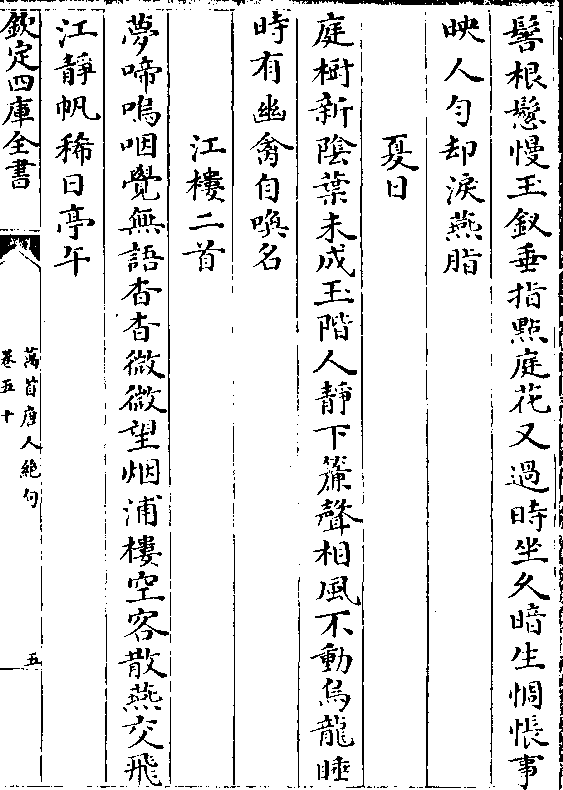 髻根鬆慢玉釵垂指點庭花又過時坐久暗生惆悵事
映人勻却淚燕脂
夏日
庭樹新陰葉未成玉階人靜下簾聲相風不動烏龍睡
時有幽禽自喚名
江樓二首
夢啼嗚咽覺無語杳杳微微望烟浦樓空客散燕交飛
江靜帆稀日亭午
欽定四庫全書
萬首唐人絶句
卷五十
五